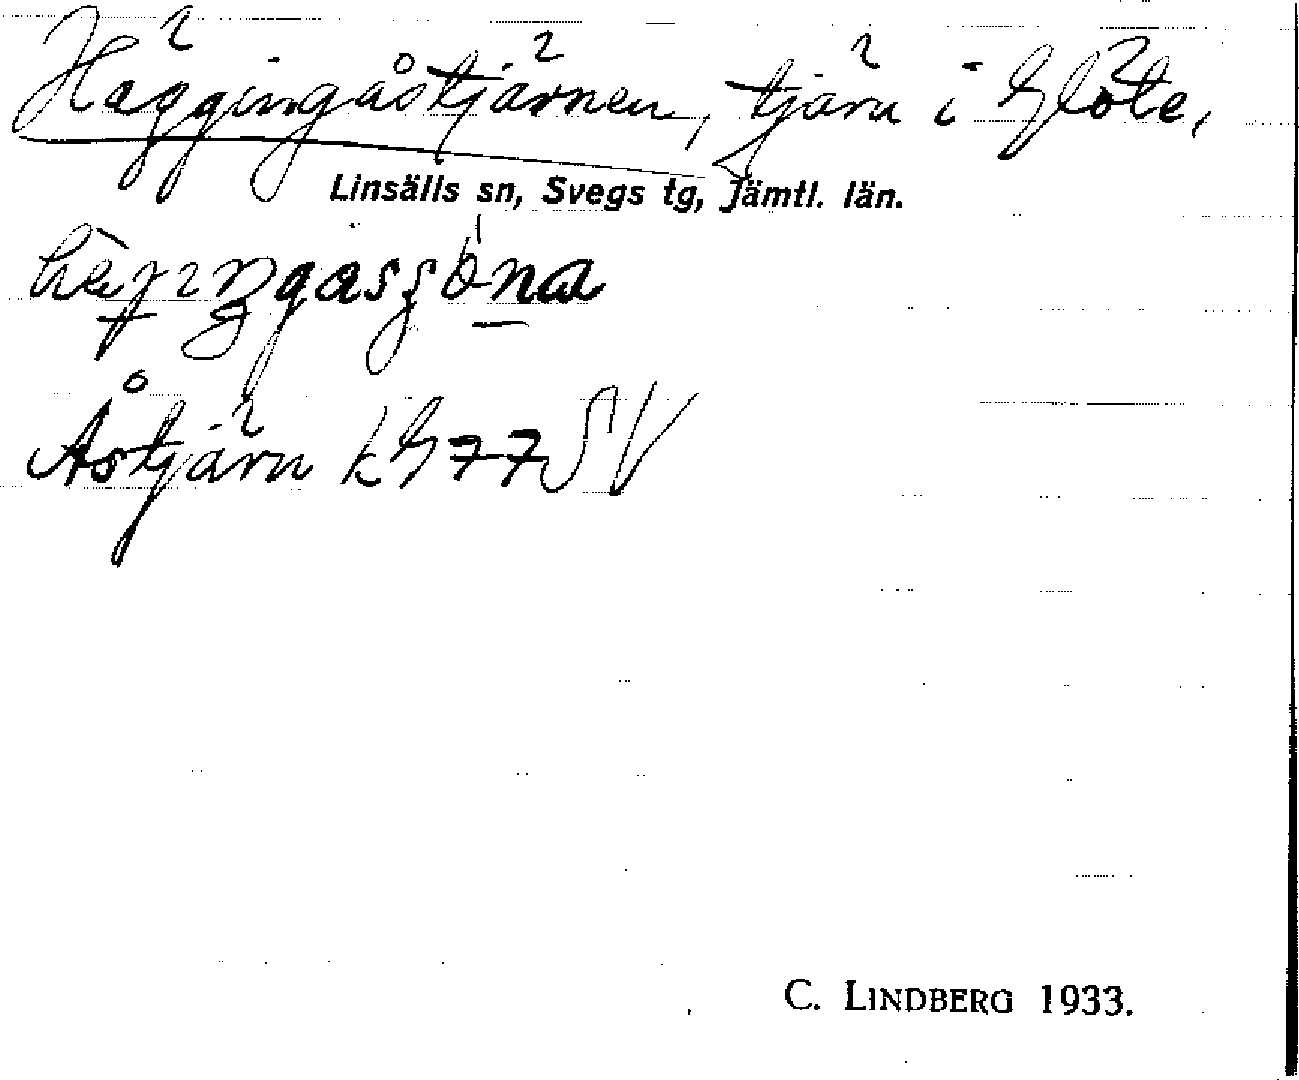 Häggingåstjärnen, tjärn i Glöte,
Linsälls sn, Svegs tg, Jämtl. län.
Åstjärn kG77SV
C. LINDBERG 1933.